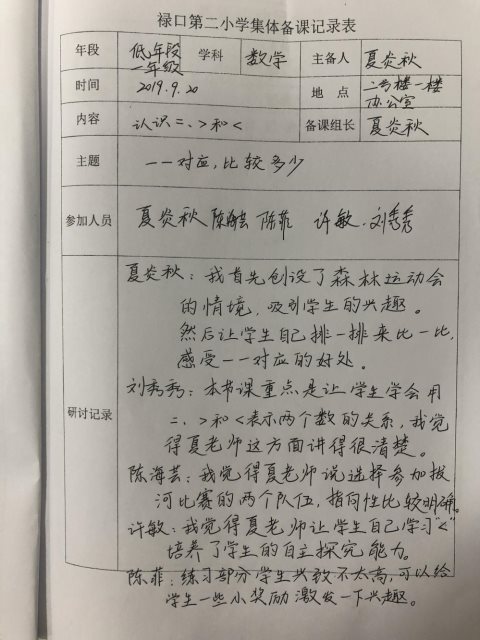 禄口第二小学集体备课记录表
年段 低年段 一年级 学科 数学 主备人 夏炎秋
时间 2019.9.20 地点 二号楼一楼 办公室
内容 认识=、>和< 备课组长 夏炎秋
主题 一一对应,比较多少
参加人员 夏炎秋 陈海芸 陈菲 许敏、刘秀秀
研讨记录
夏炎秋:我首先创设了森林运动会
的情境,吸引学生的兴趣。
然后让学生自己排一排来比一比,
感受一一对应的好处。
刘秀秀:本节课重点是让学生学会用
=、>和<表示两个数的关系,我觉
得夏老师这方面讲得很清楚。
陈海芸:我觉得夏老师说选择参加拔
河比赛的两个队伍,指向性比较明确。
许敏:我觉得夏老师让学生自己学习"<"
培养了学生的自主探究能力。
陈菲:练习部分学生兴致不太高,可以给
学生一些小奖励激发一下兴趣。